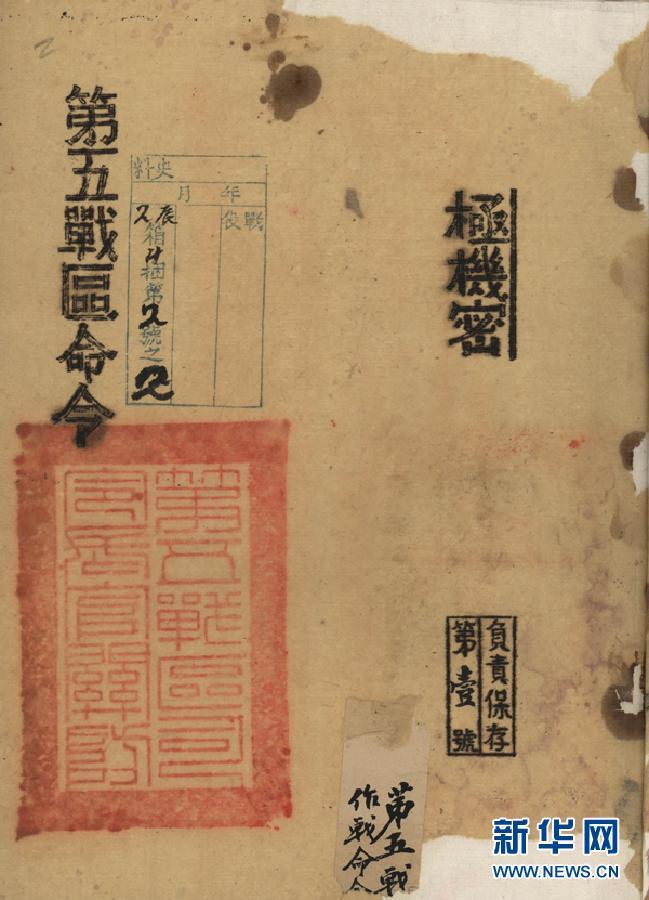 極機密
負責保存
第壹號
史料
年 月
戰役
第五戰區命令
第五戰區司
令長官關防
第五戰
作戰命令
新华网
WWW.NEWS.CN